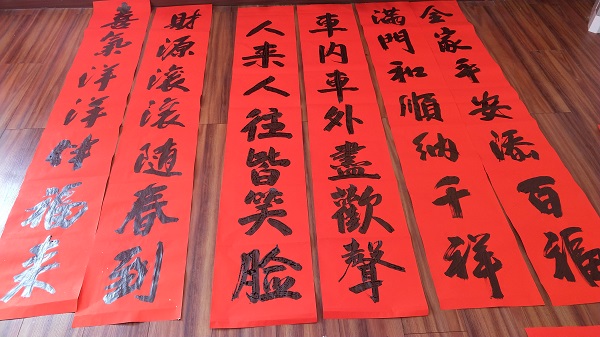 全家平安添百福
滿門和順納千祥
車內車外盡歡聲
人来人往皆笑脸
財源滾滾随春到
喜氣洋洋伴福来